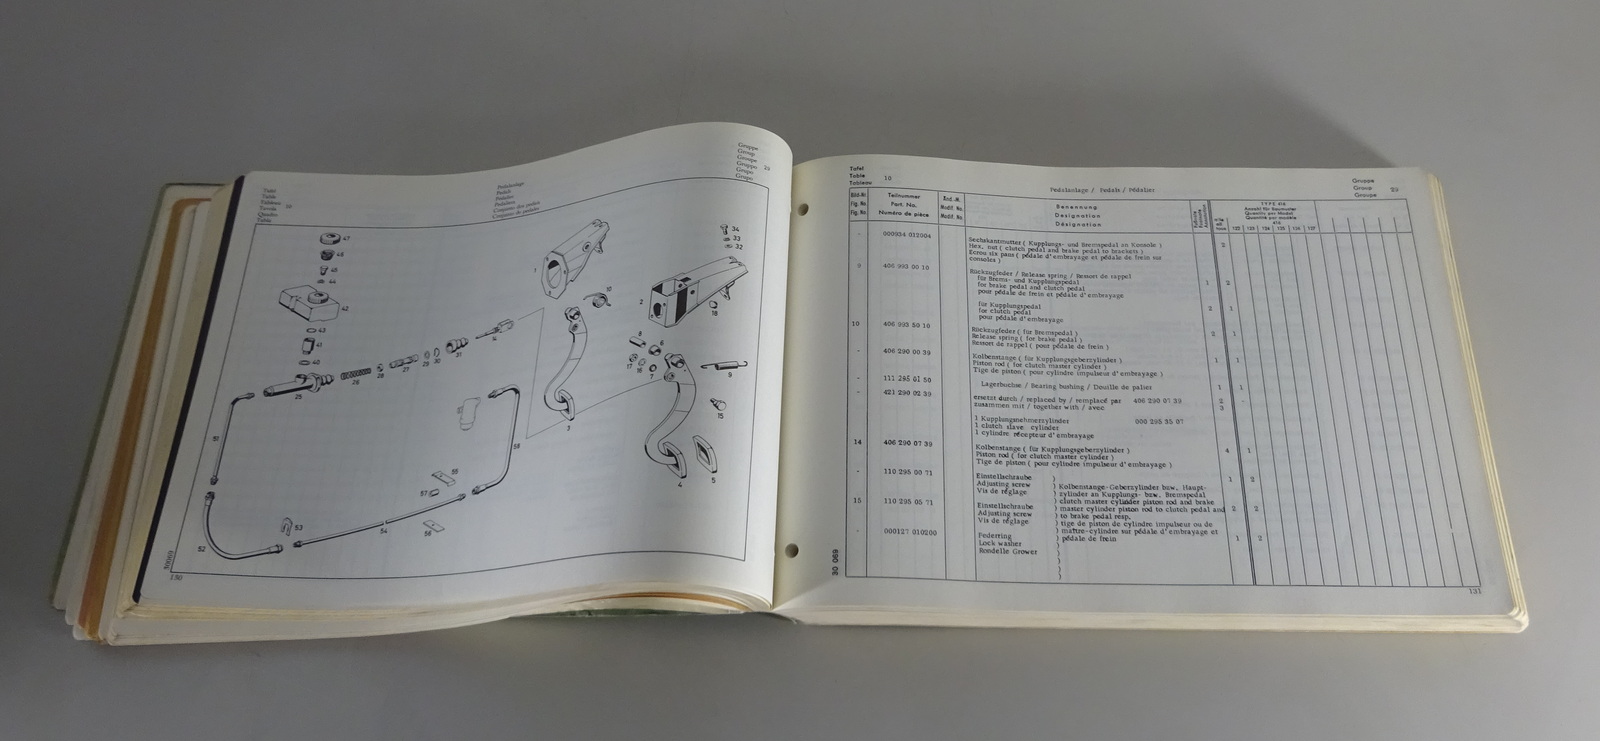 Tafel
Table
Tableau
Tavola
Quadro
Tabla
10
Pedalanlage
Pedals
Pédalier
Gruppe
Group
Groupe
Gruppo
Grupo
Grupo
47
46
45
44
42
43
41
40
25
26
28
27
29
30
31
14
1
10
2
34
33
32
18
8
6
17
16
7
9
15
3
4
5
51
52
53
54
55
57
56
58
30069
130
Tafel
Table
Tableau
10
Pedalanlage / Pedals / Pédalier
Gruppe
Group
Groupe
Bild-Nr.
Fig. No.
Fig. No.
Teilnummer
Part. No.
Numéro de pièce
Änd.-M.
Modif. No.
Modif. No.
Benennung
Designation
Désignation
TYPE 416
Anzahl für Baumuster
Quantity per Model
Quantité par modèle
416
132 133 134 135 136 137
- 000934 012004 Sechskantmutter ( Kupplungs- und Bremspedal an Konsole ) 2
Hex. nut ( clutch pedal and brake pedal to brackets )
Ecrou six pans ( pédale d'embrayage et pédale de frein sur
consoles )
9 406 993 00 10 Rückzugfeder / Release spring / Ressort de rappel
für Brems- und Kupplungspedal 1 2
for brake pedal and clutch pedal
pour pédale de frein et pédale d'embrayage
für Kupplungspedal 2 1
for clutch pedal
pour pédale d'embrayage
10 406 993 50 10 Rückzugfeder ( für Bremspedal ) 2 1
Release spring ( for brake pedal )
Ressort de rappel ( pour pédale de frein )
- 406 290 00 39 Kolbenstange ( für Kupplungsgeberzylinder ) 1 1
Piston rod ( for clutch master cylinder )
Tige de piston ( pour cylindre impulseur d'embrayage )
- 111 295 01 50 Lagerbuchse / Bearing bushing / Douille de palier 1 1
- 421 290 02 39 ersetzt durch / replaced by / remplacé par 406 290 07 39 2 -
zusammen mit / together with / avec 3
1 Kupplungsnehmerzylinder 000 295 35 07
1 clutch slave cylinder
1 cylindre récepteur d'embrayage
14 406 290 07 39 Kolbenstange ( für Kupplungsgeberzylinder ) 4 1
Piston rod ( for clutch master cylinder )
Tige de piston ( pour cylindre impulseur d'embrayage )
- 110 295 00 71 Einstellschraube ) 1 2
Adjusting screw ) Kolbenstange-Geberzylinder bzw. Haupt-
Vis de réglage ) zylinder an Kupplungs- bzw. Bremspedal
15 110 295 05 71 Einstellschraube ) clutch master cylinder piston rod and brake
Adjusting screw ) master cylinder piston rod to clutch pedal and 2 2
Vis de réglage ) to brake pedal resp.
- 000127 010200 Federring ) tige de piston de cylindre impulseur ou de
Lock washer ) maître-cylindre sur pédale d'embrayage et
Rondelle Grower ) pédale de frein 1 2
30 069
131